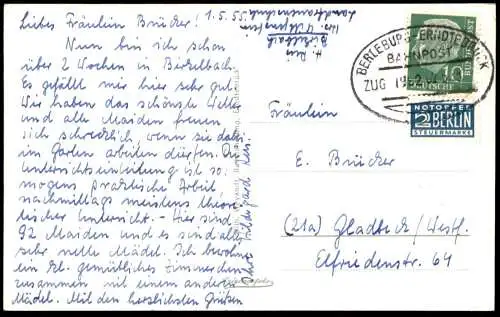 Liebes Fräulein Brücker! 1.5.55.
Nun bin ich schon
über 2 Wochen in Birkelbach.
Es gefällt mir hier sehr gut.
Wir haben das schönste Wetter
und alle Maiden freuen
sich schrecklich, wenn sie da
im Garten arbeiten dürfen. Die
Unterrichtseinteilung ist so:
morgens praktische Arbeit,
nachmittags meistens theore-
tischer Unterricht. - Hier sind
92 Maiden und es sind alles
sehr nette Mädel. Ich bewohne
ein kl. gemütliches Zimmerchen
zusammen mit einem anderen
Mädel. Mit den herzlichsten Grüßen
Ihre Hildegard
Birkelbach
Landfrauenschule
BERLEBURG-ERNDTEBRÜCK
BAHNPOST
ZUG
10
DEUTSCHE
BUNDESPOST
NOTOPFER
2 BERLIN
STEUERMARKE
Fräulein
E. Brücker
(21a) Gladbeck/Westf.
Elfriedenstr. 64